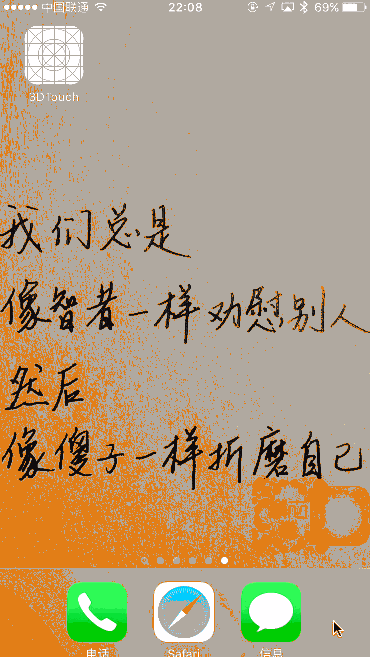 中国联通 22:08 69%
3DTouch
我们总是
像智者一样劝慰别人
然后
像傻子一样折磨自己
电话 Safari 信息